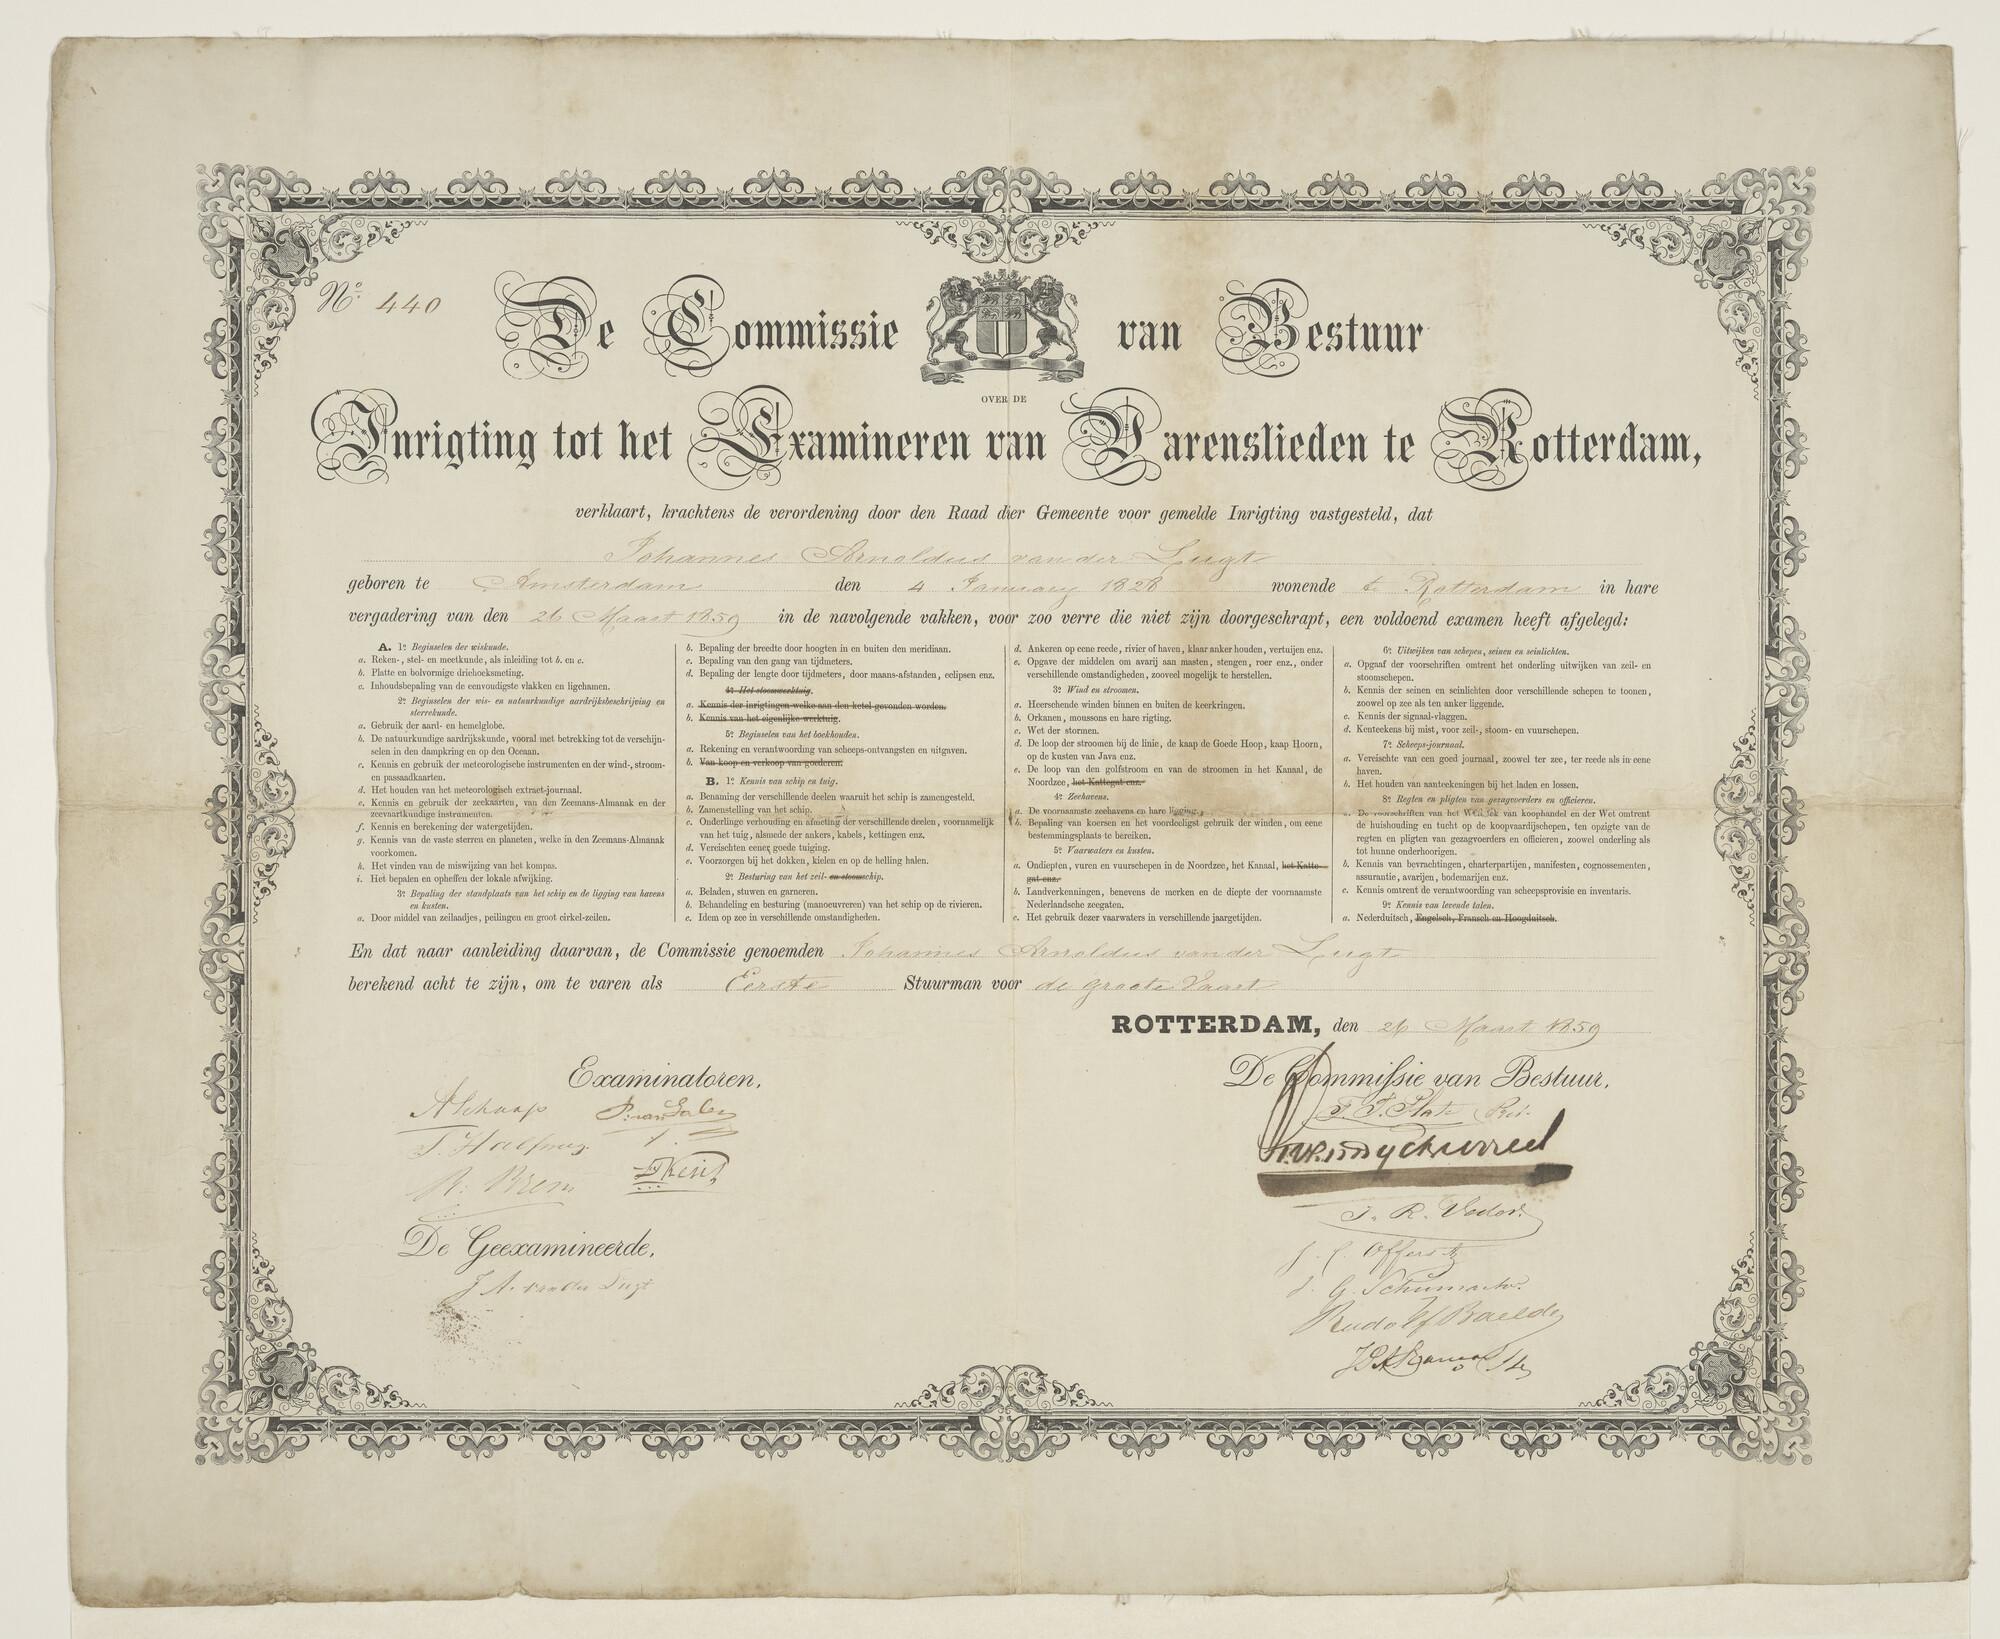 No. 440
De Commissie van Bestuur
OVER DE
Inrigting tot het Examineren van Varenslieden te Rotterdam,
verklaart, krachtens de verordening door den Raad dier Gemeente voor gemelde Inrigting vastgesteld, dat
Johannes Arnoldus van der Lugt
geboren te Amsterdam den 4 January 1828 wonende te Rotterdam in hare
vergadering van den 26 Maart 1859 in de navolgende vakken, voor zoo verre die niet zijn doorgeschrapt, een voldoend examen heeft afgelegd:
A. 1º Beginselen der wiskunde.
a. Reken-, stel- en meetkunde, als inleiding tot b. en c.
b. Platte en bolvormige driehoeksmeting.
c. Inhoudsbepaling van de eenvoudigste vlakken en ligchamen.
2º Beginselen der wis- en natuurkundige aardrijksbeschrijving en
sterrekunde.
a. Gebruik der aard- en hemelglobe.
b. De natuurkundige aardrijkskunde, vooral met betrekking tot de verschijn-
selen in den dampkring en op den Oceaan.
c. Kennis en gebruik der meteorologische instrumenten en der wind-, stroom-
en passaadkaarten.
d. Het houden van het meteorologisch extract-journaal.
e. Kennis en gebruik der zeekaarten, van den Zeemans-Almanak en der
zeevaartkundige instrumenten.
f. Kennis en berekening der watergetijden.
g. Kennis van de vaste sterren en planeten, welke in den Zeemans-Almanak
voorkomen.
h. Het vinden van de miswijzing van het kompas.
i. Het bepalen en opheffen der lokale afwijking.
3º Bepaling der standplaats van het schip en de ligging van havens
en kusten.
a. Door middel van zeilaadjes, peilingen en groot cirkel-zeilen.
b. Bepaling der breedte door hoogten in en buiten den meridiaan.
c. Bepaling van den gang van tijdmeters.
d. Bepaling der lengte door tijdmeters, door maans-afstanden, eclipsen enz.
4º Het stoomwerktuig.
a. Kennis der inrigtingen welke aan den ketel gevonden worden.
b. Kennis van het eigenlijke werktuig.
5º Beginselen van het boekhouden.
a. Rekening en verantwoording van scheeps-ontvangsten en uitgaven.
b. Van koop en verkoop van goederen.
B. 1º Kennis van schip en tuig.
a. Benaming der verschillende deelen waaruit het schip is zamengesteld.
b. Zamenstelling van het schip.
c. Onderlinge verhouding en afmeting der verschillende deelen, voornamelijk
van het tuig, alsmede der ankers, kabels, kettingen enz.
d. Vereischten eener goede tuiging.
e. Voorzorgen bij het dokken, kielen en op de helling halen.
2º Besturing van het zeil- en stoomschip.
a. Beladen, stuwen en garneren.
b. Behandeling en besturing (manoeuvreren) van het schip op de rivieren.
c. Idem op zee in verschillende omstandigheden.
d. Ankeren op eene reede, rivier of haven, klaar anker houden, vertuijen enz.
e. Opgave der middelen om avarij aan masten, stengen, roer enz., onder
verschillende omstandigheden, zooveel mogelijk te herstellen.
3º Wind en stroomen.
a. Heerschende winden binnen en buiten de keerkringen.
b. Orkanen, moussons en hare rigting.
c. Wet der stormen.
d. De loop der stroomen bij de linie, de kaap de Goede Hoop, kaap Hoorn,
op de kusten van Java enz.
e. De loop van den golfstroom en van de stroomen in het Kanaal, de
Noordzee, het Kattegat enz.
4º Zeehavens.
a. De voornaamste zeehavens en hare ligging.
b. Bepaling van koersen en het voordeeligst gebruik der winden, om eene
bestemmingsplaats te bereiken.
5º Vaarwaters en kusten.
a. Ondiepten, vuren en vuurschepen in de Noordzee, het Kanaal, het Katte-
gat enz.
b. Landverkenningen, benevens de merken en de diepte der voornaamste
Nederlandsche zeegaten.
c. Het gebruik dezer vaarwaters in verschillende jaargetijden.
6º Uitwijken van schepen, seinen en seinlichten.
a. Opgaaf der voorschriften omtrent het onderling uitwijken van zeil- en
stoomschepen.
b. Kennis der seinen en seinlichten door verschillende schepen te toonen,
zoowel op zee als ten anker liggende.
c. Kennis der signaal-vlaggen.
d. Kenteekens bij mist, voor zeil-, stoom- en vuurschepen.
7º Scheeps-journaal.
a. Vereischte van een goed journaal, zoowel ter zee, ter reede als in eene
haven.
b. Het houden van aanteekeningen bij het laden en lossen.
8º Regten en pligten van gezagvoerders en officieren.
a. De voorschriften van het Wetboek van koophandel en der Wet omtrent
de huishouding en tucht op de koopvaardijschepen, ten opzigte van de
regten en pligten van gezagvoerders en officieren, zoowel onderling als
tot hunne onderhoorigen.
b. Kennis van bevrachtingen, charterpartijen, manifesten, cognossementen,
assurantie, avarijen, bodemarijen enz.
c. Kennis omtrent de verantwoording van scheepsprovisie en inventaris.
9º Kennis van levende talen.
a. Nederduitsch, Engelsch, Fransch en Hoogduitsch.
En dat naar aanleiding daarvan, de Commissie genoemden Johannes Arnoldus van der Lugt
berekend acht te zijn, om te varen als Eerste Stuurman voor de groote Vaart
ROTTERDAM, den 26 Maart 1859
Examinatoren.
De Commissie van Bestuur.
A Schaap
F. F. Plate
R. Brem
J. R. Veder
De Geexamineerde.
J. A. van der Lugt
Rudolf Baelde